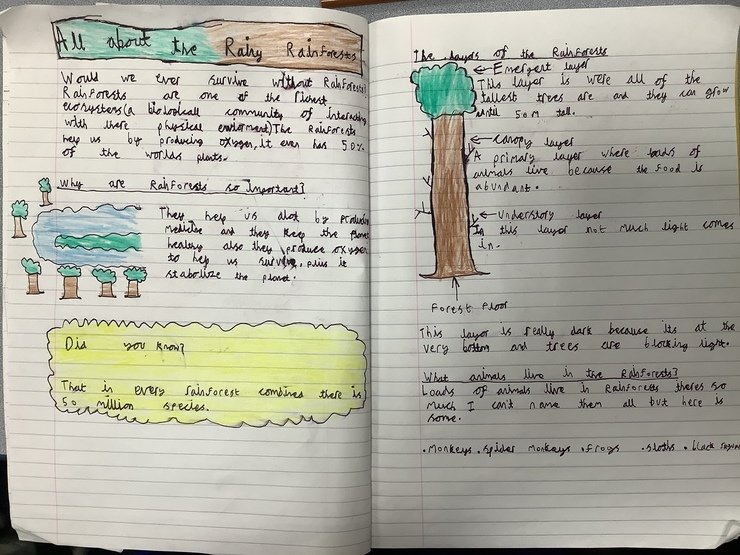 All about the Rainy Rainforests
Would we ever survive without Rainforests?
Rainforests are one of the richest
ecosystems (a biologicall community of interacting
with there physical enviorment) The Rainforests
help us by producing oxygen, it even has 50%
of the worlds plants.
Why are Rainforests so important?
They help us alot by producing
medicine and they keep the planet
healthy also they produce oxygen
to help us survive, plus it
stabolize the planet.
Did you know?
That in every rainforest combined there is
50 million species.
The layers of the Rainforests
Emergent layer
This layer is were all of the
tallest trees are and they can grow
until 50m tall.
Canopy layer
A primary layer where loads of
animals live because the food is
abundant.
Understory layer
In this layer not much light comes
in.
Forest floor
This layer is really dark because its at the
very bottom and trees are blocking light.
What animals live in the Rainforests?
Loads of animals live in Rainforests theres so
much I can't name them all but here is
some.
.Monkeys .spider monkeys .frogs .sloths .black